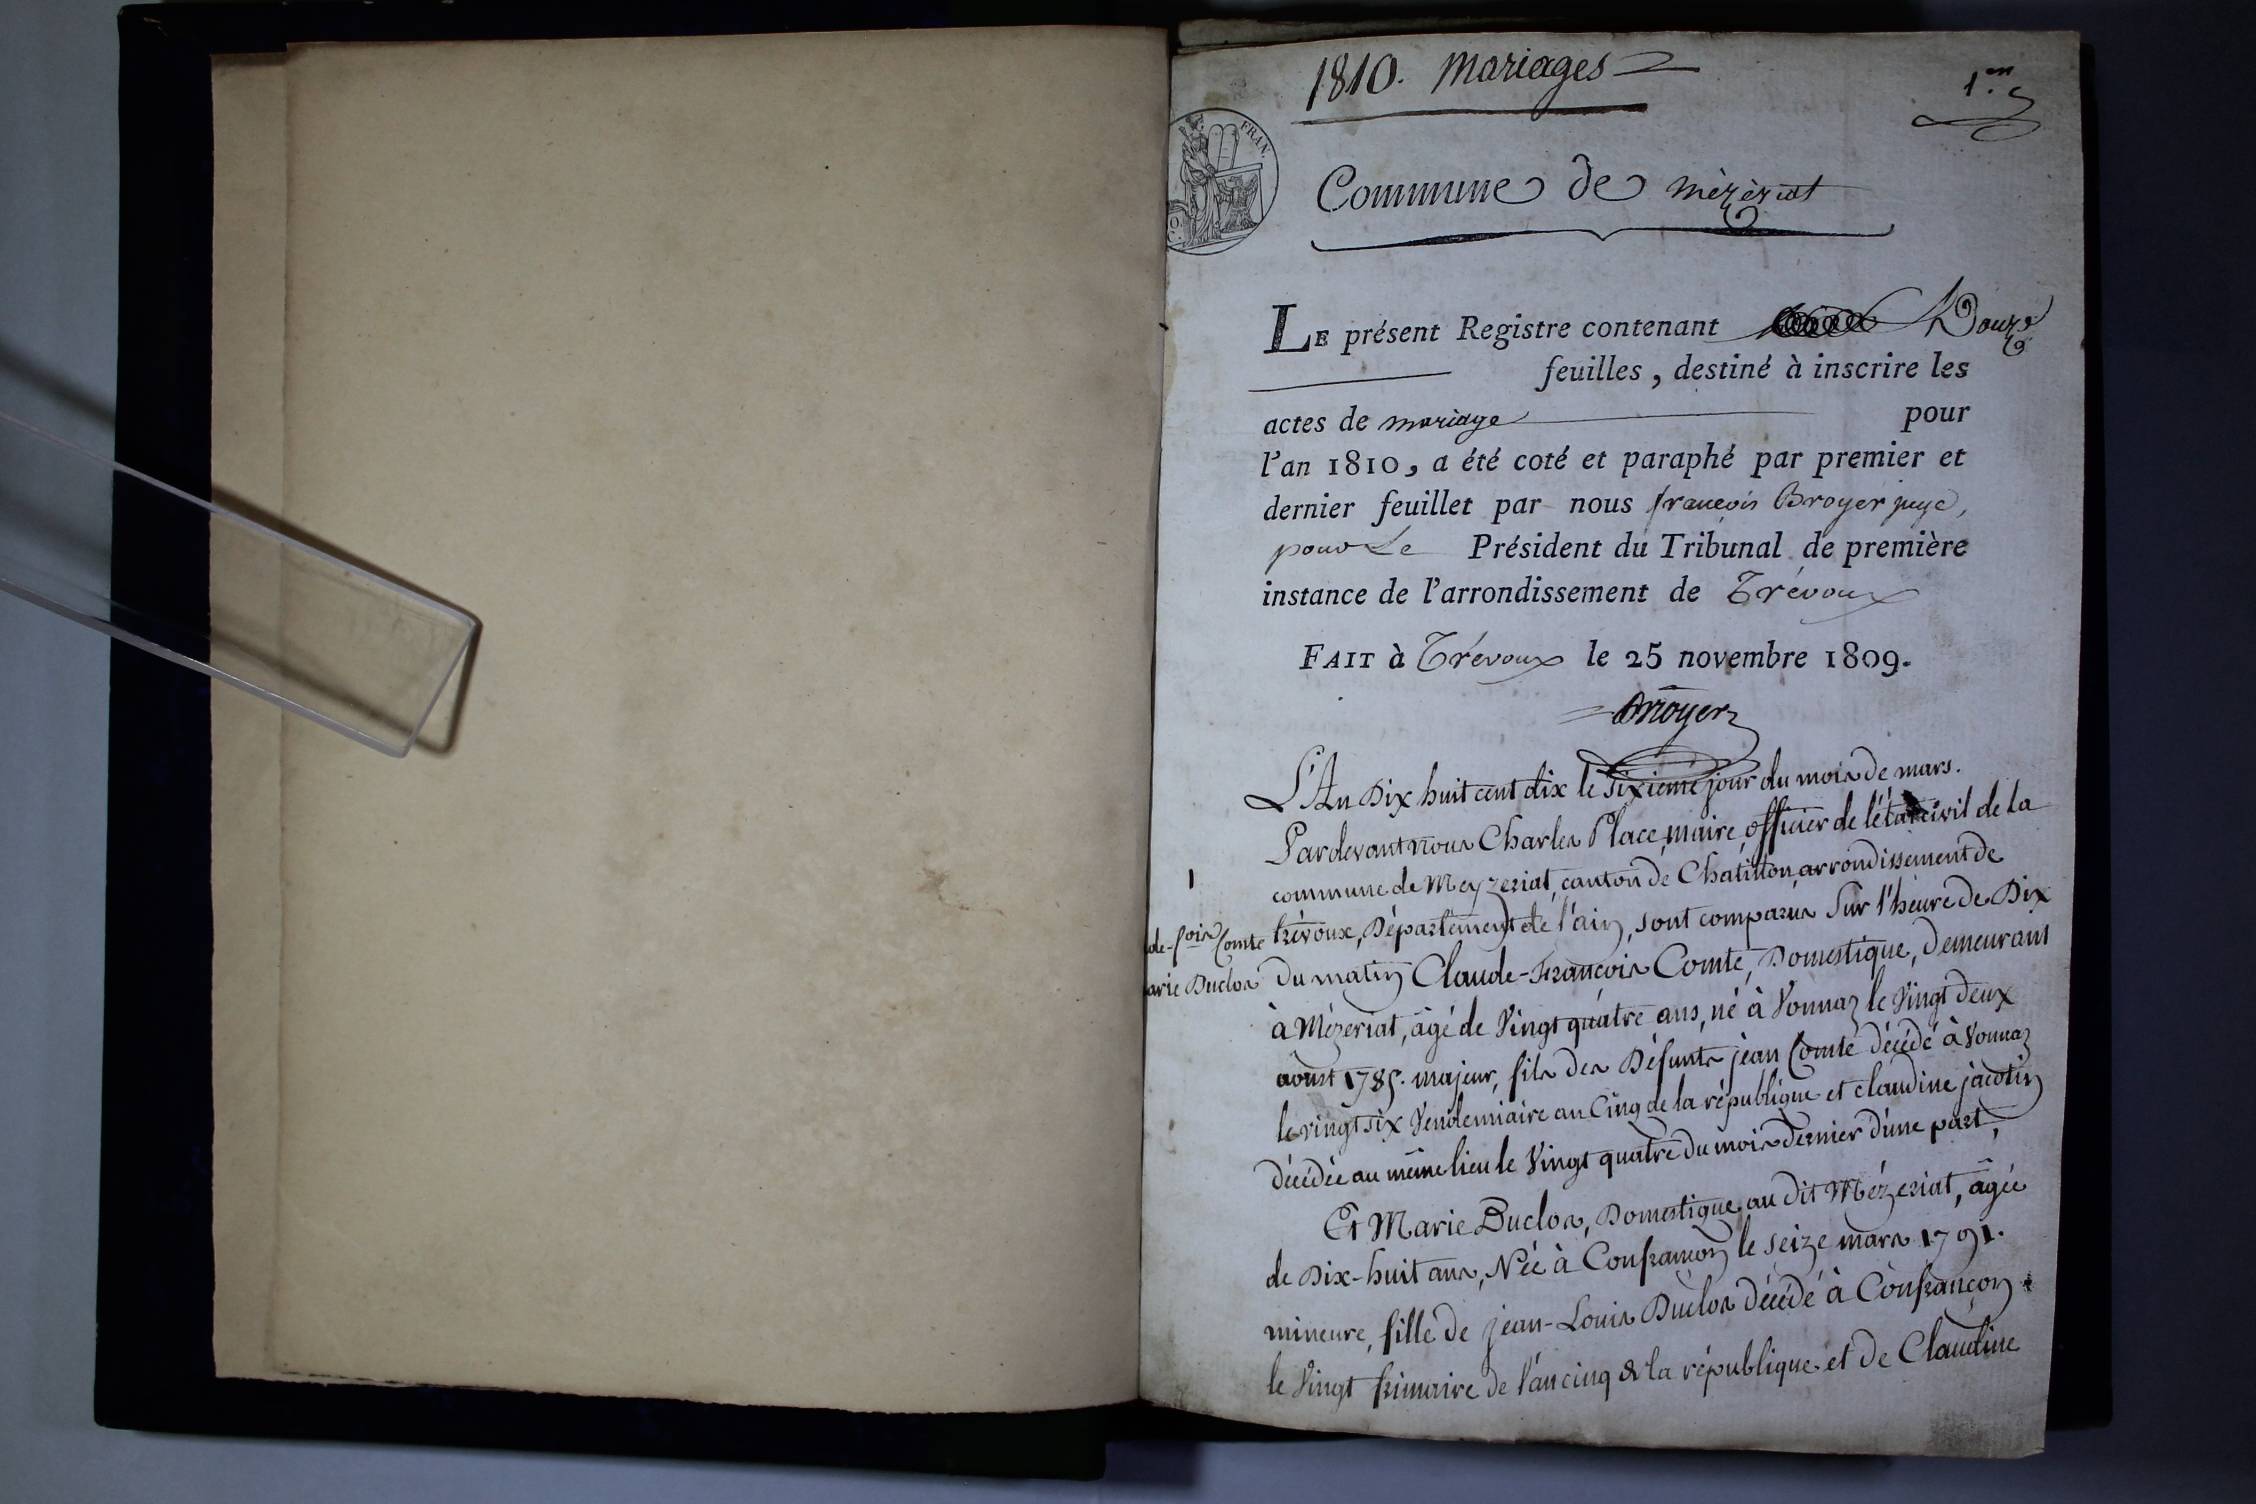 1810. Mariages
1.er
FRAN.
Commune de Mézériat
LE présent Registre contenant Douze
feuilles, destiné à inscrire les
actes de mariage pour
l'an 1810, a été coté et paraphé par premier et
dernier feuillet par nous françois Broyer juge,
pour Le Président du Tribunal de première
instance de l'arrondissement de Trévoux
FAIT à Trévoux le 25 novembre 1809.
Broyer
L'An Dix huit cent dix le sixieme jour du mois de mars.
Pardevant nous Charles Place, maire, officier de l'état civil de la
commune de Meyzeriat, canton de Chatillon, arrondissement de
trévoux, Département de l'ain, sont comparus Sur l'heure de Dix
du matin Claude-François Comte, Domestique, Demeurant
à Mézeriat, âgé de Vingt quatre ans, né à Vonnaz le Vingt deux
aoust 1785. majeur, fils des Défunts jean Comte décédé à Vonnaz
le vingt six Vendemiaire an Cinq de la république et claudine jacotin
décédée au même lieu le Vingt quatre du mois dernier d'une part,
Et Marie Duclos, Domestique au dit Mézeriat, âgée
de Dix-huit ans, Née à Confrançon le seize mars 1791.
mineure, fille de jean-Louis Duclos décédé à Confrançon
le Vingt frimaire de l'an cinq de la république et de Claudine
1
de-fois Comte
arie Duclos